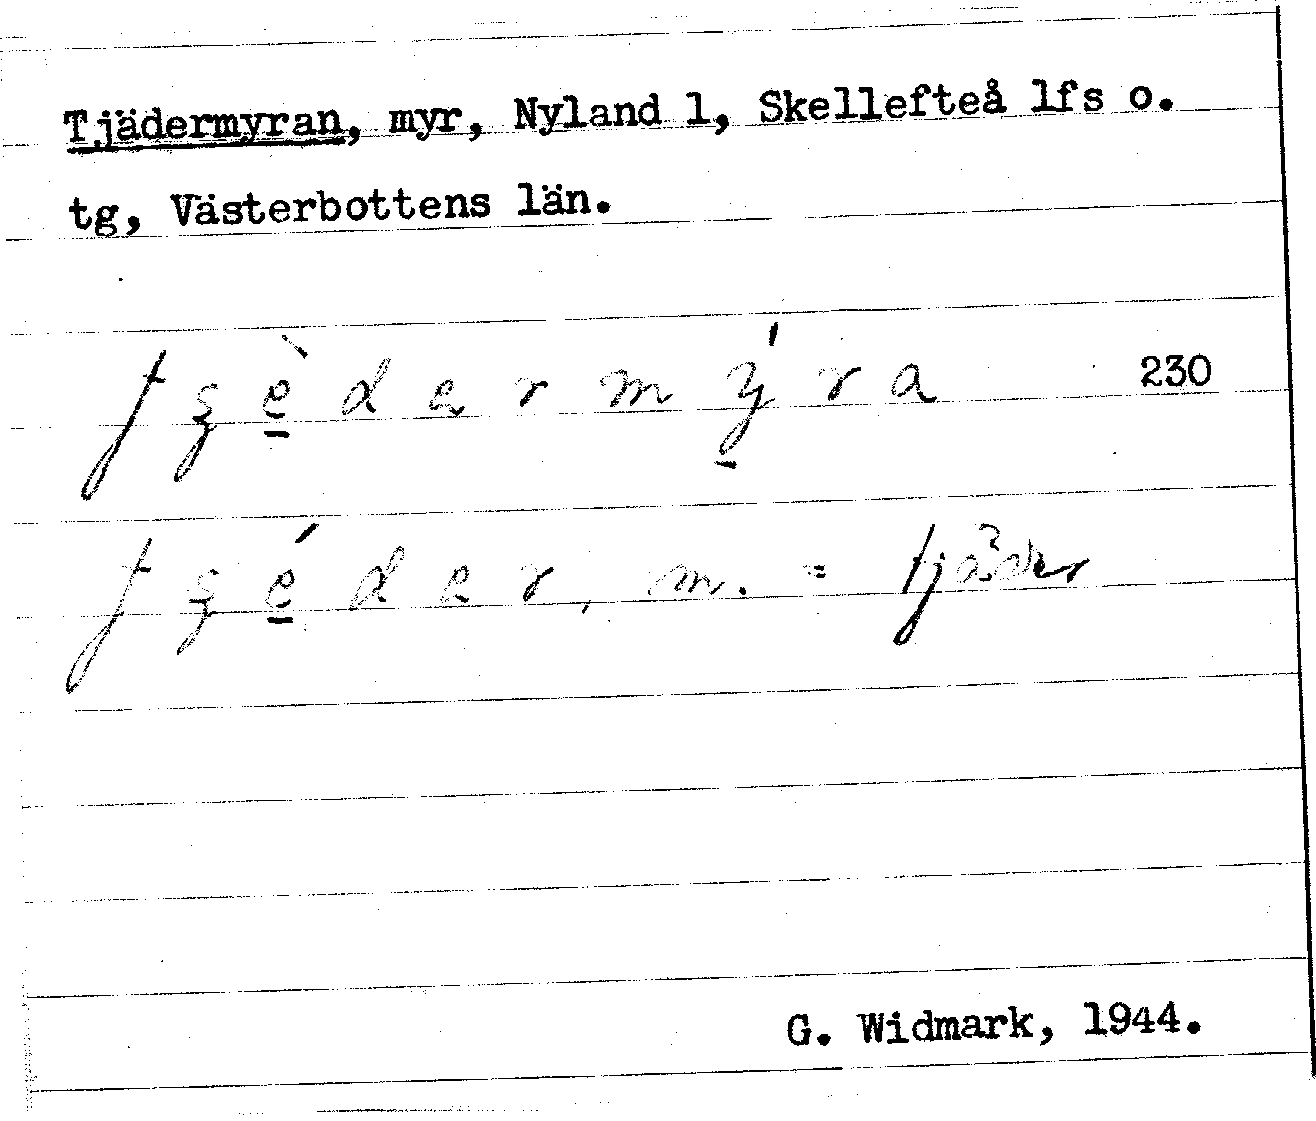 Tjädermyran, myr, Nyland 1, Skellefteå lfs o.
tg, Västerbottens län.
tʂè̠dermý̠ra 230
tʂé̠der, m. = tjäder
G. Widmark, 1944.